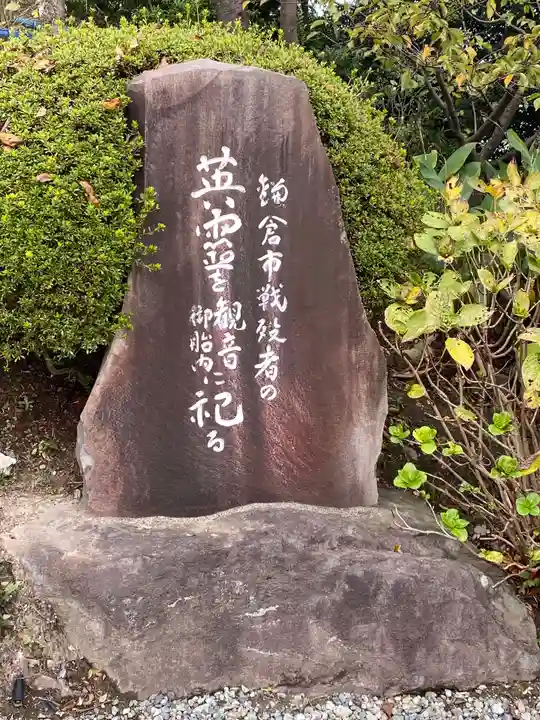 鎌倉市戦歿者の
英霊を観音御胎内に祀る